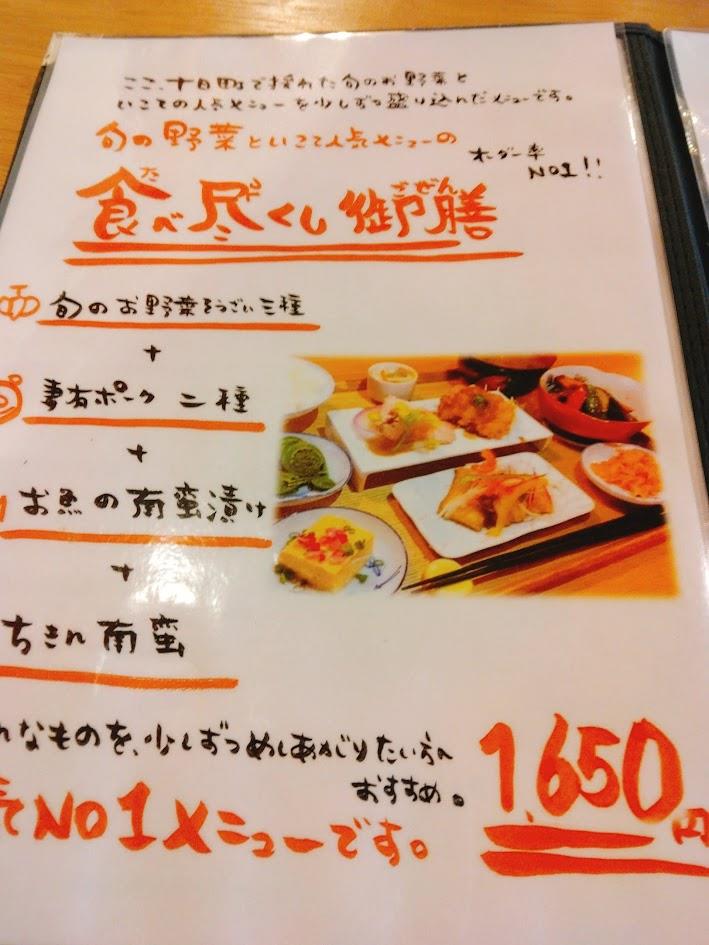 ここ、十日町で採れた旬のお野菜と
いこての人気メニューを少しずつ盛り込んだメニューです。
旬の野菜といこて人気メニューの
オーダー率
NO1!!
た つ ごぜん
食べ尽くし御膳
旬のお野菜そうざい三種
+
妻有ポーク 二種
+
お魚の南蛮漬け
+
ちきん南蛮
んなものを、少しずつめしあがりたい方へ
おすすめ。
1,650円
NO1メニューです。